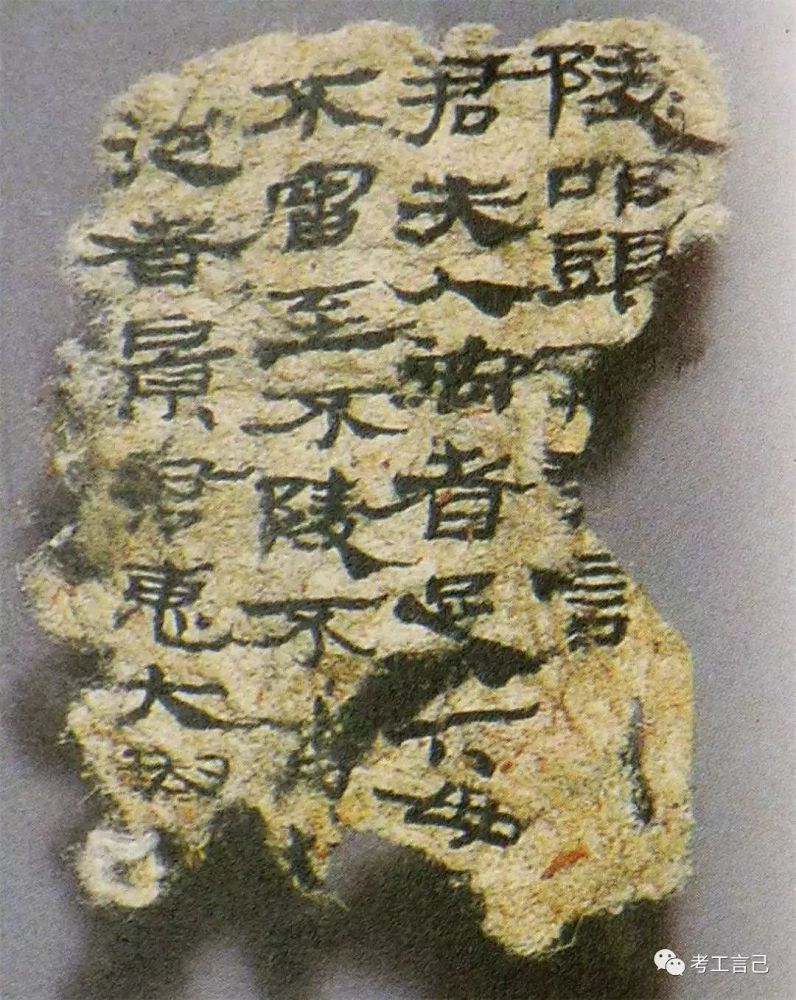 陵叩頭
君夫人御者足下毋
不留至不陵不
者景君惠大
考工言己